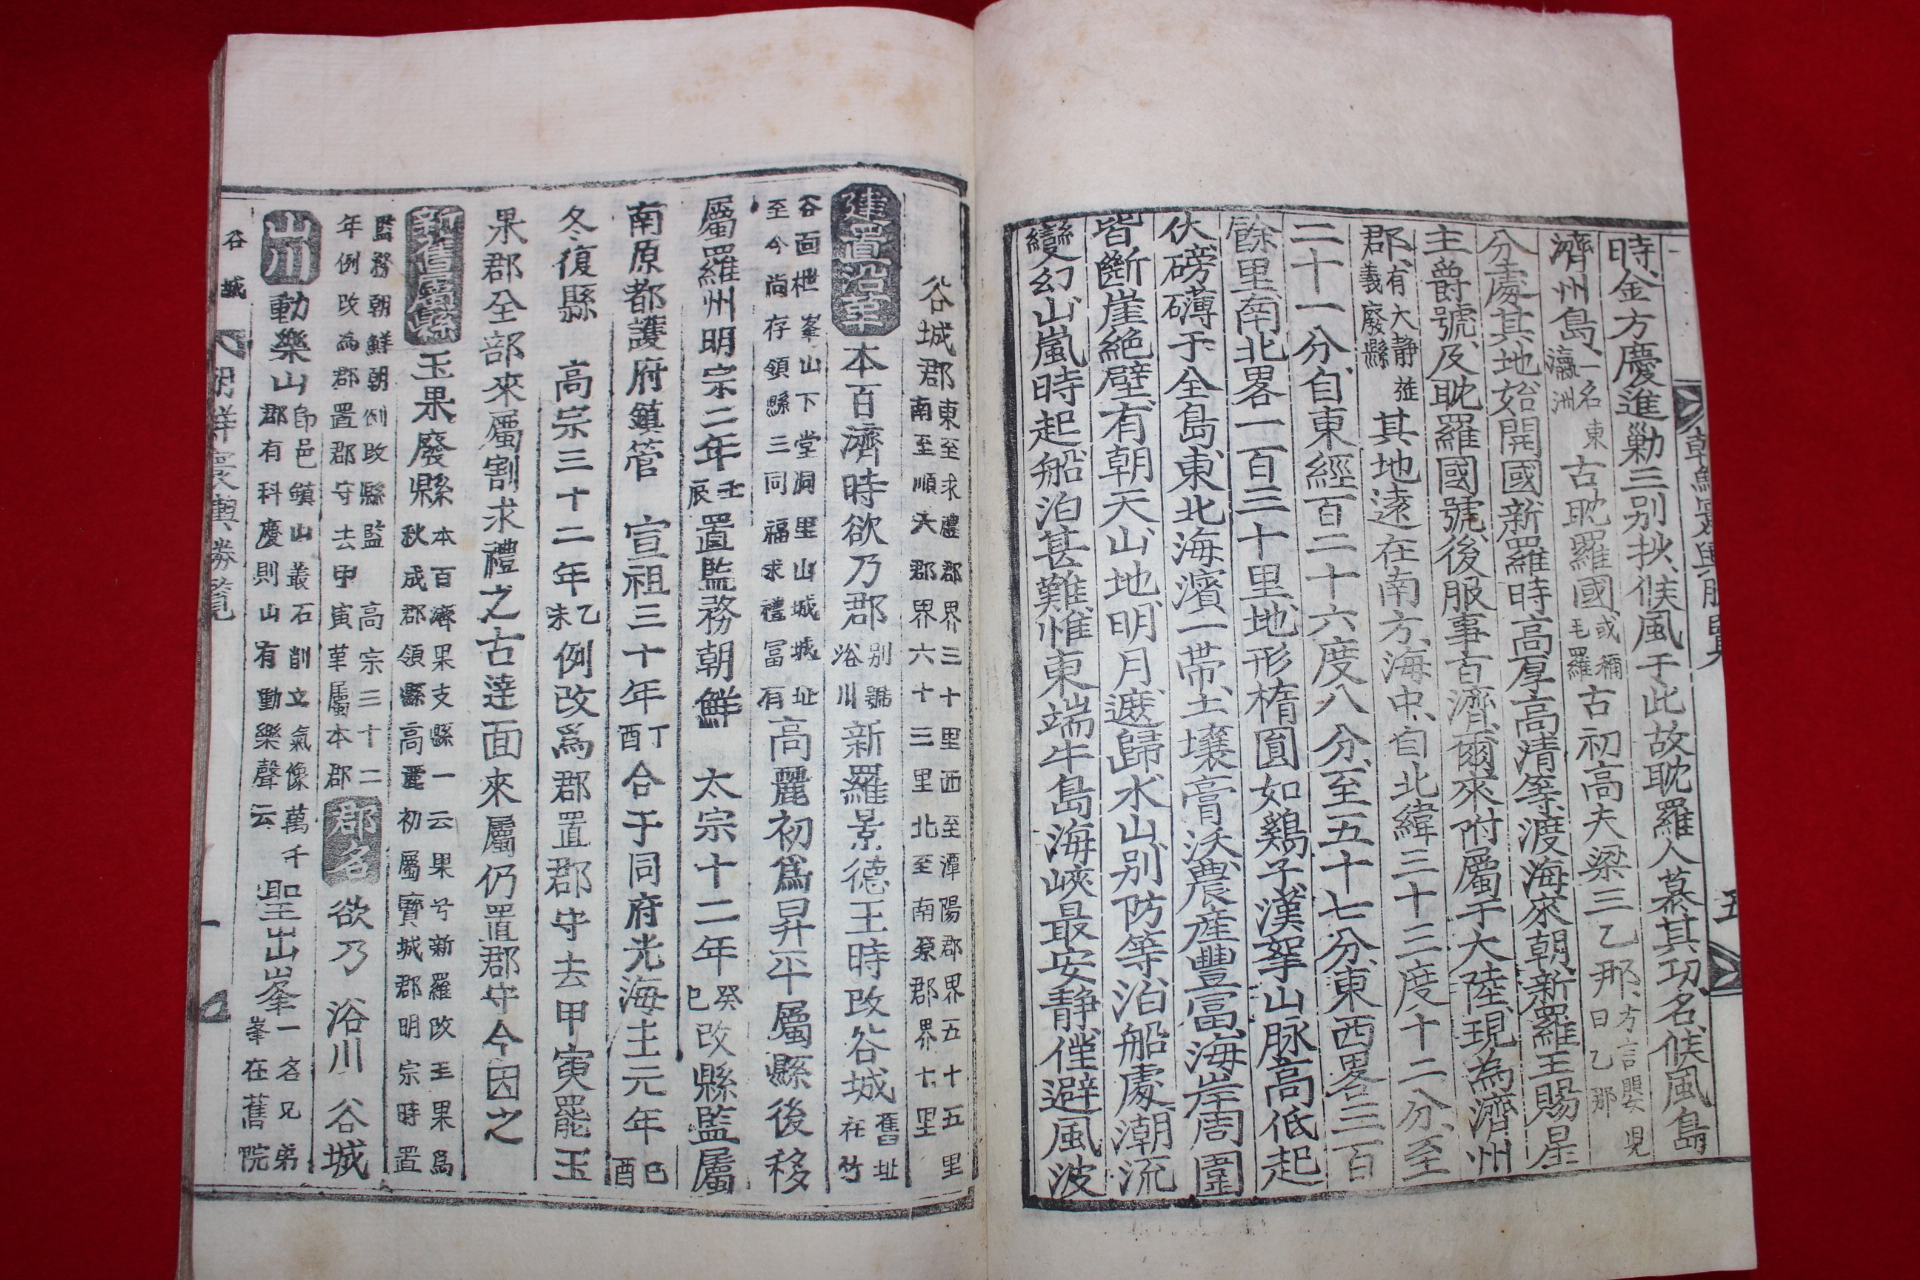 時、金方慶進勦三別抄、候風于此、故耽羅人慕其功、名候風島
濟州島、一名東瀛洲 古耽羅國、或稱毛羅 古初高夫梁三乙那、方言嬰児曰乙那
分處其地、始開國、新羅時高厚高清等、渡海來朝、新羅王賜星
主爵號、及耽羅國號、後服事百濟、爾來附屬于大陸、現為濟州
郡、有大静旌義廢縣 其地遠在南方海中、自北緯三十三度十二分、至
二十一分、自東經百二十六度八分、至五十七分、東西畧三百
餘里、南北畧一百三十里、地形楕圓如鷄子、漢拏山脉高低起
伏磅礡于全島、東北海濱一帶、土壤膏沃、農産豐富、海岸周圍
皆斷崖絶壁、有朝天、山地、明月、遮歸、水山、別防等泊船處、潮流
變幻、山嵐時起、船泊甚難、惟東端牛島海峽最安静、僅避風波
朝鮮寰輿勝覽
五
谷城郡 東至求禮郡界三十里西至潭陽郡界五十五里南至順天郡界六十三里北至南原郡界十里
建置沿革 本百濟時欲乃郡 別號浴川 新羅景德王時改谷城 舊址在竹
谷面樾峯山下堂洞里山城城址至今尚存領縣三同福求禮富有 高麗初爲昇平屬縣後移
屬羅州明宗二年 壬辰 置監務朝鮮 太宗十二年 癸巳 改縣監屬
南原都護府鎮管 宣祖三十年 丁酉 合于同府光海主元年 巳酉
冬復縣 高宗三十二年 乙未 例改爲郡置郡守去甲寅罷玉
果郡全部來屬割求禮之古達面來屬仍置郡守今因之
新舊屬縣 玉果廢縣 本百濟果支縣一云果兮新羅改玉果爲秋成郡領縣高麗初屬寶城郡明宗時置
監務朝鮮朝例改縣監 高宗三十二年例改為郡置郡守去甲寅革屬本郡 郡名 欲乃 浴川 谷城
山川 動樂山 郡有科慶則山有動樂聲云 聖出峯 一名兄弟峯在舊院
谷城
一